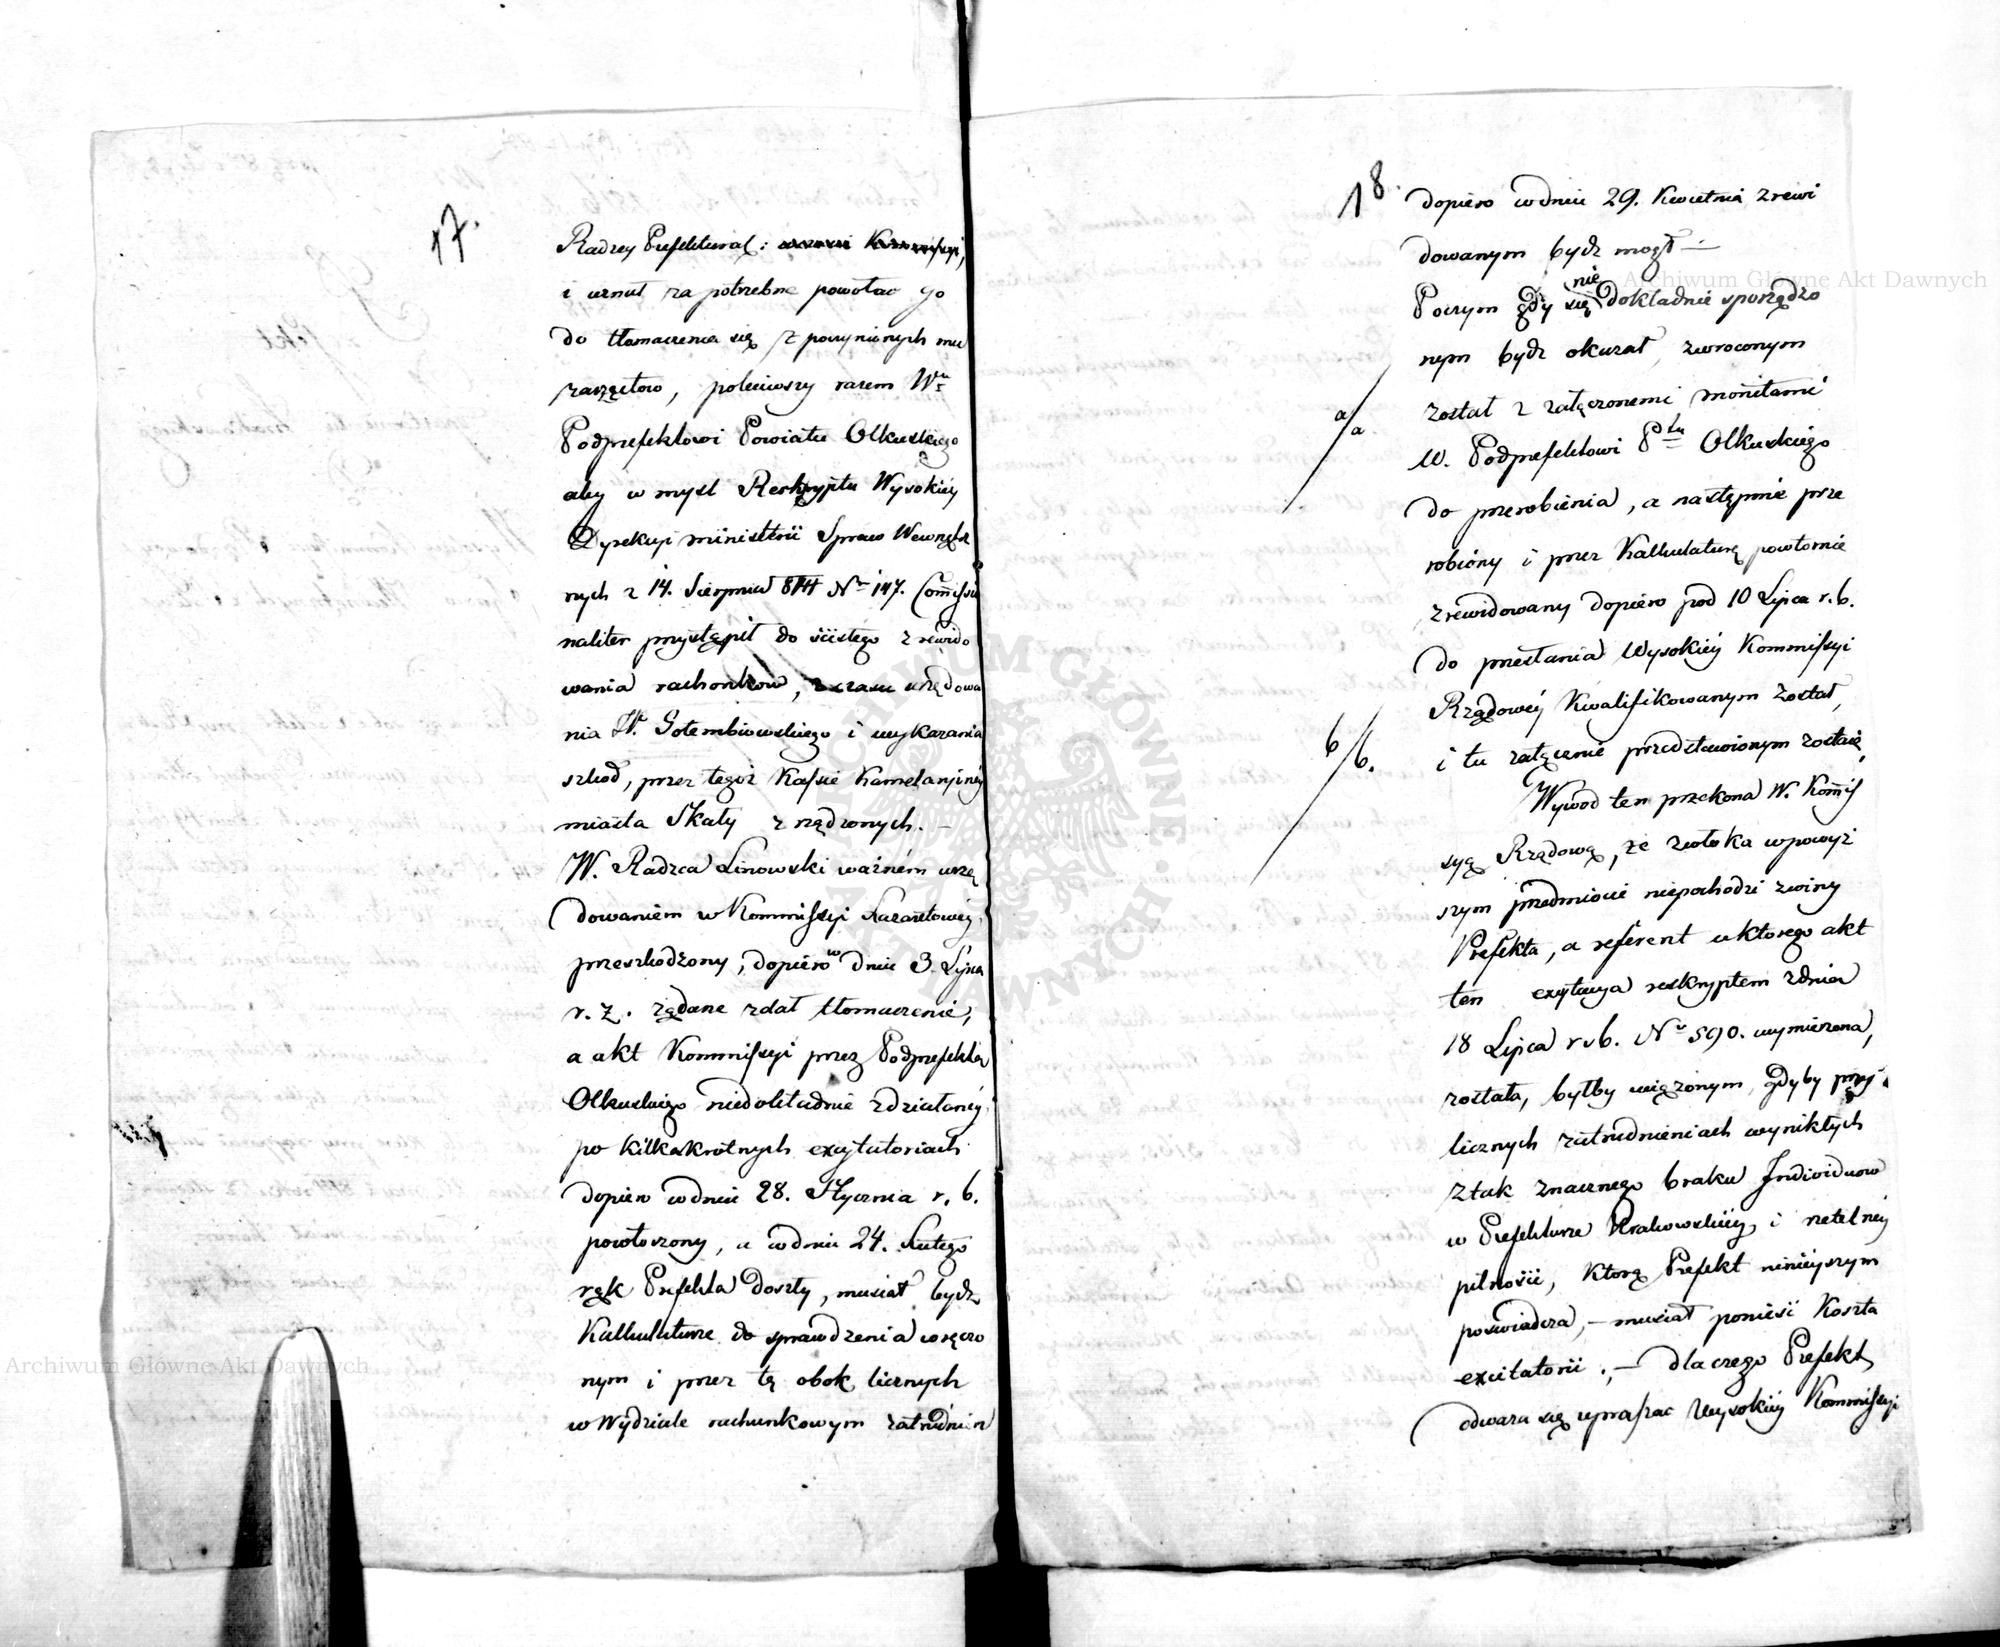 17.
Radzcy Prefektural:
i uznał za potrzebne powołać go
do tłomaczenia się z poczynionych mu
zarzutów, poleciwszy razem Wu
Podprefektowi Powiatu Olkuskiego
aby w myśl Reskryptu Wysokiéy
Dyrekcyi ministerii Spraw Wewnętrz
nych z 14. Sierpnia 814 Nr 147. Com̃issio
naliter przystąpił do ścisłego zrewido
wania rachonków, z czasu urzędowa
nia W. Gołembiowskiego i wykazania
szkod, przez tegoż Kassie Kamelaryinéy
miasta Skały zrządzonych. —
W. Radzca Linowski ważném urzę
dowaniem w Kommissyi Lazaretowéy
przeszkodzony, dopiero w dniu 3. Lipca
r. z. żądane zdał tłomaczenie,
a akt Kommissyi przez Podprefekta
Olkuskiego niedokładnie zdziałanéy
po kilkakrotnych excytatoriach
dopiero w dniu 28. Stycznia r. b.
powtorzony, a w dniu 24. Lutego
rąk Prefekta doszły, musiał bydź
Kalkulaturze do sprawdzenia wręczo
nym i przez tę obok licznych
w Wydziale rachunkowym zatrudnień
18.
dopiero w dniu 29. Kwietnia zrewi
dowanym bydź mogł —
Poczym gdy się nie dokładnie sporządzo
nym bydź okazał, zwroconym
a/a
został z załączonemi monitami
W. Podprefektowi Ptu Olkuskiego
do przerobienia, a następnie prze
robiony i przez Kalkulaturę powtornie
zrewidowany dopiero pod 10 Lipca r. b.
do przesłania Wysokiéy Kommissyi
Rządowéy Kwalifikowanym został,
b/b.
i tu załącznie przedstawionym zostaie,
Wywod ten przekona W. Kom̃is
syą Rządową, że zwłoka w powyż
szym przedmiocie niepochodzi z winy
Prefekta, a referent u ktorego akt
ten excytacya reskryptem z dnia
18 Lipca r. b. Nr 590. wymierzona,
została, byłby wiązonym, gdyby przy
licznych zatrudnieniach wynikłych
z tak znacznego braku Individuow
w Prefekturze Krakowskiéy, i rzetelnéy
pilności, którą Prefekt ninieyszym
poświadcza, — musiał ponieść Koszta
excitatorii. — dla czego Prefekt
odważa się upraszać Wysokiéy Kommissyi
Archiwum Główne Akt Dawnych
Archiwum Główne Akt Dawnych
ARCHIWUM GŁÓWNE AKT DAWNYCH